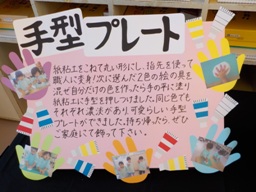 手型プレート
紙粘土をこねて丸い形にし、指先を使って
職人に変身!次に選んだ2色の絵の具を
混ぜ自分だけの色を作ったら手の平に塗り
紙粘土に手型を押しつけました。同じ色でも
それぞれ濃淡があり可愛らしい手型
プレートができました。持ち帰ったら、ぜひ
ご家庭にて飾って下さい。